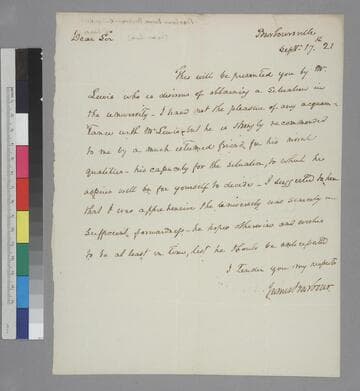 Barboursville
Sept. 17th 21
Dear Sir
This will be presented you by Mr.
Lewis who is desirous of obtaining a Situation in
the University - I have not the pleasure of any acquain-
tance with Mr Lewis but he is strongly recommended
to me by a much esteemed friend, for his moral
qualities - his capacity for the situation to which he
aspires will be for yourself to decide - I suggested to him
that I was apprehensive the university was scarcely in
sufficient forwardness - he hopes otherwise and wishes
to be at least in time, lest he should be anticipated
I tender you my respects
James Barbour